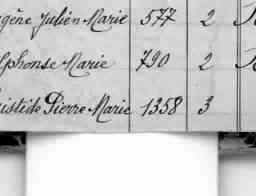 gène Julien Marie 577 2
lphonse Marie 790 2
istide Pierre Marie 1358 3